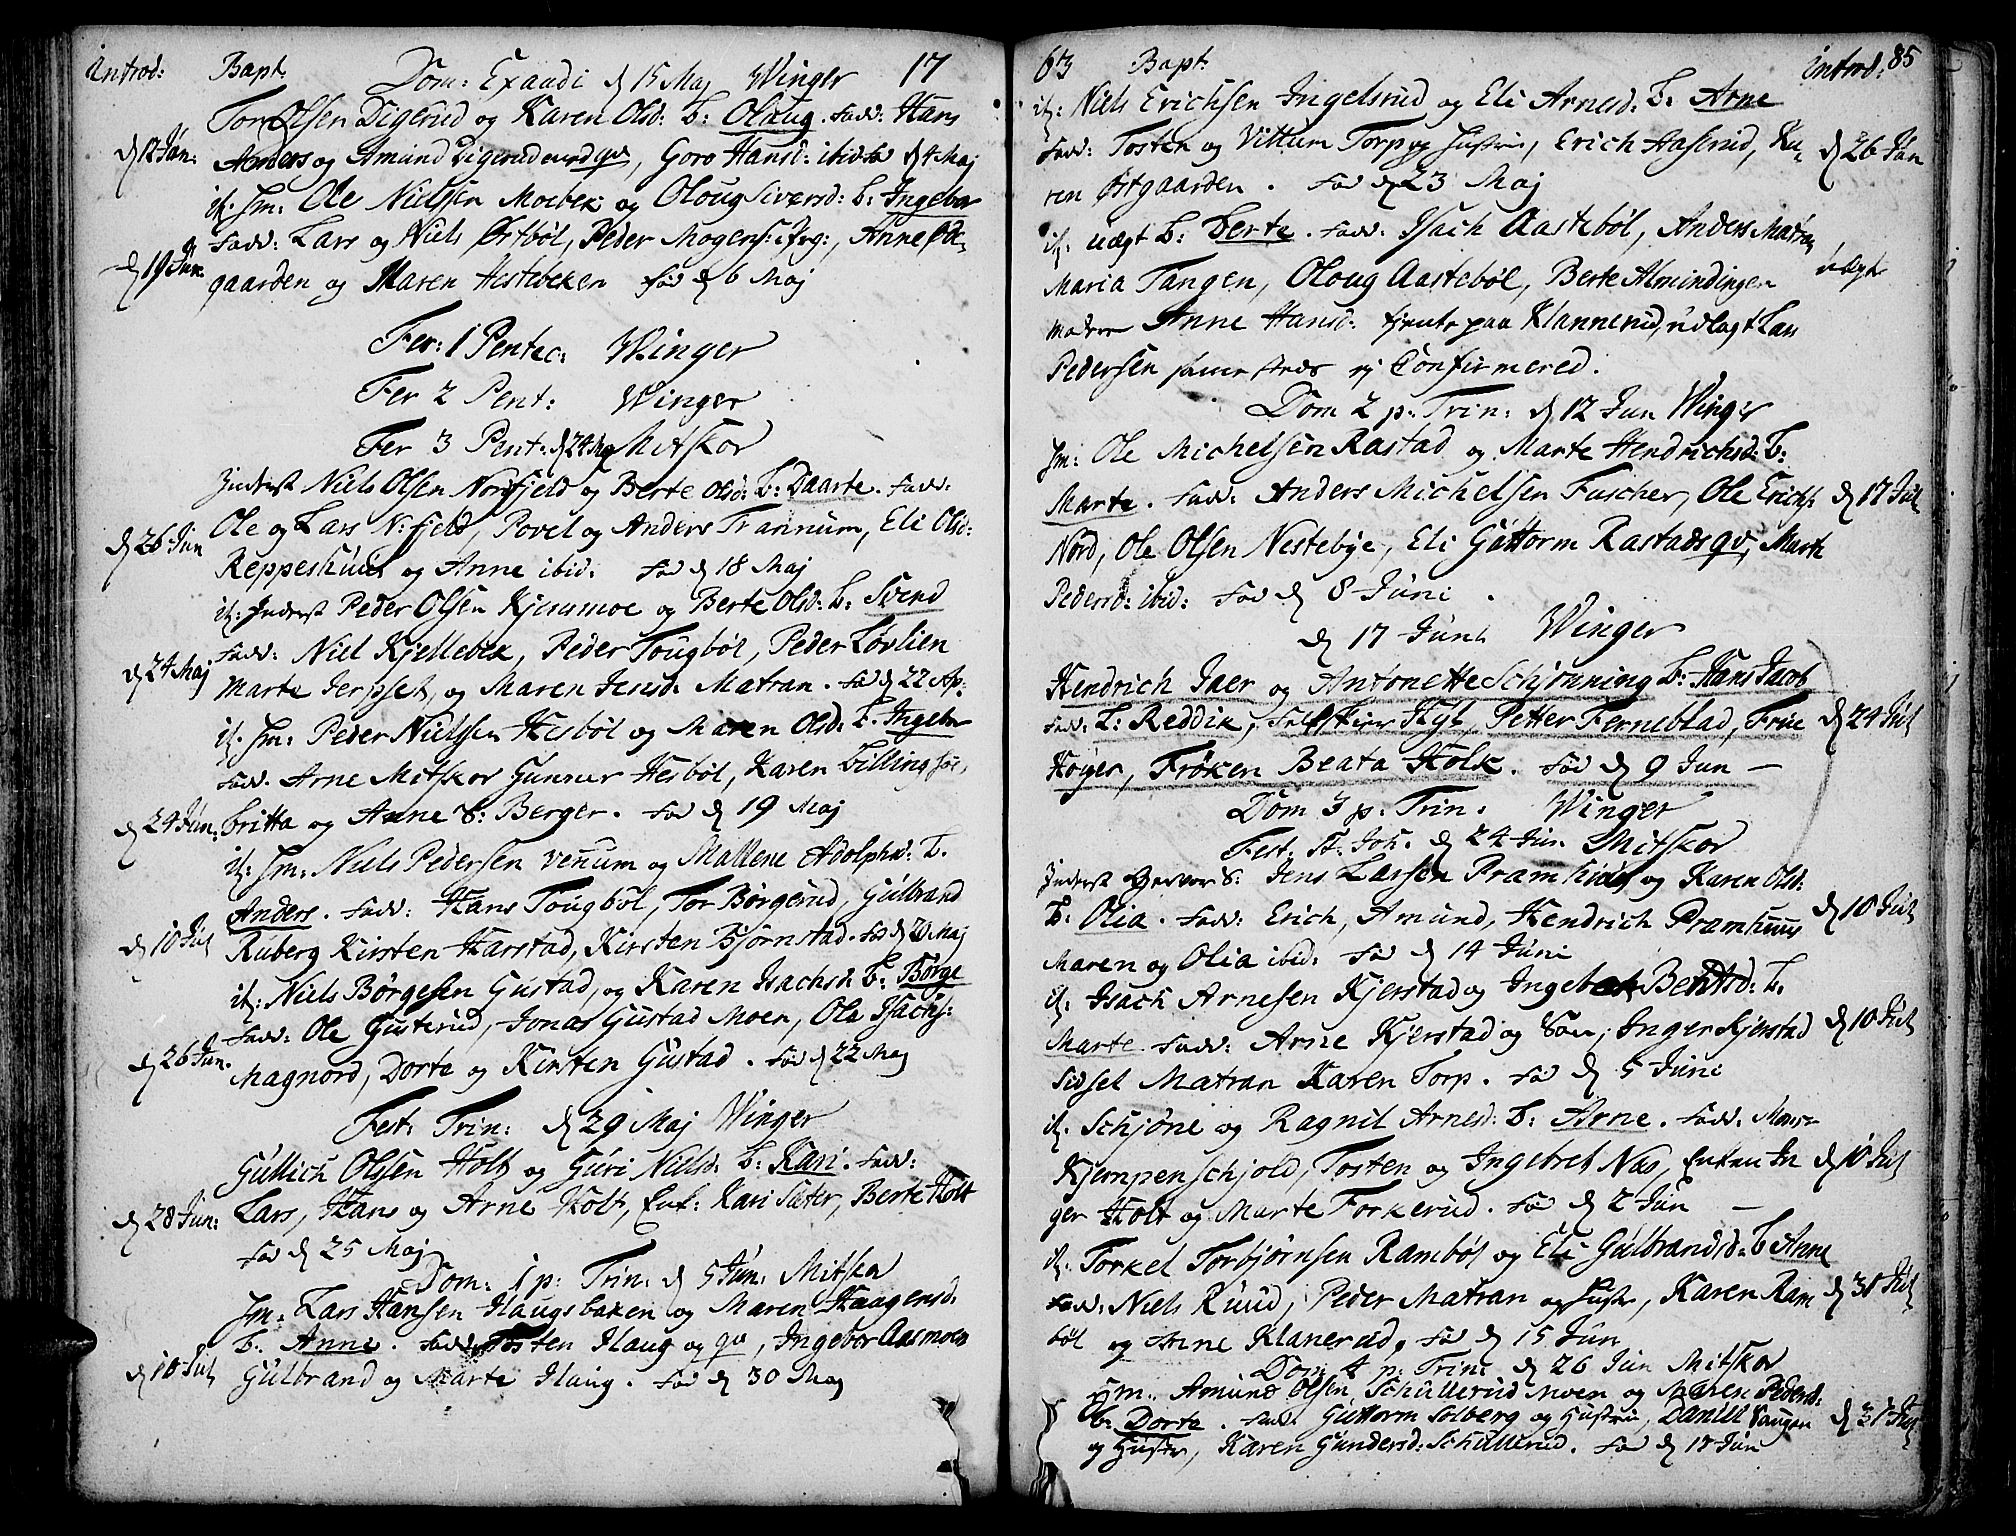 Introd: Bapt. Dom: Exaudi d 15 Maj Winger 17
Tor Olsen Digerud og Karen Olsd: b: Oloug. Fadd: Hans
d 12 Jun: Anders og Amund Digerud med qv, Goro Hansd: ibid: fød d 4 Maj
it. Hm: Ole Nielsen Moebek og Oloug Siversd: b: Ingebor
Fadd: Lars og Niels Østbøl, Peder Mogens:, Anne Øst
d 19 Jun. gaarden og Maren Hestebeken fød d 6 Maj
Fer: 1 Pentec: Winger
Fer 2 Pent: Winger
Fer 3 Pent: d 24 Maj Mitskov
Inderst Niels Olsen Norfjeld og Berte Olsd: b: Daarte. Fadd:
d 26 Jun Ole og Lars N:fjeld, Povel og Anders Trannum, Eli Olsd:
Reppeshuus og Anne ibid: Fød d 18 Maj
it: Inderst Peder Olsen Kjernmoe og Berte Olsd: b: Svend
Fadd: Niel Kjellebek, Peder Tougbøl, Peder Løvlien
d 24 Maj Marte Jerpset, og Maren Jensd: Matran. Fød d 22 Ap:
it. Hm: Peder Nielsen Hesbøl og Maren Olsd: b. Ingebor
Fadd. Arne Mitskov Gunner Hesbøl, Karen Billingsøe,
d 24 Jun: Britta og Anne S: Berger. Fød d 19 Maj
it: Hm: Niels Pedersen Venum og Mallene Adolphsd: b.
Anders. Fadd: Hans Tougbøl, Tor Børgerud, Gulbrand
d 10 Jul Ruberg Kirsten Harstad, Kirsten Bjørnstad. Fød d 20 Maj
it: Niels Børgesen Gustad, og Karen Isachsd: b: Børge
Fadd: Ole Gusterud, Jonas Gustad Moen, Ole Isachs:
d 26 Jun. Magnord, Dorte og Kirsten Gustad. Fød d 22 Maj
Fest: Trin: d 29 Maj Winger
Gullich Olsen Holt og Guri Nielsd: b: Kari. Fadd:
d 28 Jun: Lars, Hans og Arne Holt, Enk: Kari Sæter, Berte Holt
Fød d 25 Maj
Dom: 1 p: Trin: d 5 Jun: Mitskov
Hm: Lars Hansen Haugsbaken og Maren Haagensd:
b: Anne. Fadd: Tosten Haug og qv, Ingebor Aasmoen
d 10 Jul Gulbrand og Marte Haug. Fød d 30 Maj
63 Bapt. Introd: 85
it: Niels Erichsen Ingelsrud og Eli Arnesd: b: Arne
Fadd: Tosten og Vittum Torp og Hustru, Erich Aaserud, Ka- d 26 Jun
ren Østgaarden. Fød d 23 Maj
it: uægt b: Berte. Fadd: Isach Aastebøl, Anders Matran
Maria Tangen, Oloug Aastebøl, Berte Almindingen uægte
Moder Anne Hansd: tjente paa Klannerud, udlagt Lars
Pedersen samme steds ej Confirmered.
Dom 2 p: Trin: d 12 Jun Winger
Hm: Ole Michelsen Rastad og Marte Hendrichsd: b:
Marte. Fadd: Anders Michelsen Fuscher, Ole Erichs: d 17 Jul
Nord, Ole Olsen Nestebye, Eli Guttorm Rastads qv, Marte
Pedersd: ibid: Fød d 8 Juni.
d 17 Juni Winger
Hendrich Jaer og Antonette Schjønning b: Hans Jacob
Fadd: L: Reddik, Kyl, Petter Ferneblad, Frue d 24 Jul
Høyer, Frøken Beata Holk. Fød d 9 Jun —
Dom 3 p: Trin: Winger
Fest. St. Joh. d 24 Jun Mitskov
Inderst S: Jens Larsen Pramhuus og Karen Olsd:
b: Olia. Fadd: Erich, Amund, Hendrich Pramhuus d 10 Jul
Maren og Olia ibid: Fød d 14 Juni
it: Isach Arnesen Kjerstad og Ingebor Bentsd: b.
Marte. Fadd: Arne Kjerstad og Søn, Inger Kjerstad d 10 Jul
Sidsel Matran Karen Torp. Fød d 5 Juni
it. Schjøne og Ragnil Arnesd: b: Arne. Fadd:
Kjempenschjold, Tosten og Ingebret Næs, Enken In d 10 Jul
ger Holt og Marte Forkerud. Fød d 2 Jun —
it. Torkel Torbjørnsen Rambøl og Eli Gulbrandsd: b Anne
Fadd: Niels Ruud, Peder Matran og Hustr, Karen Ram d 31 Jul
bøl og Anne Klanerud, Fød d 15 Jun
Dom 4 p: Trin: d 26 Jun Mitskov
Hm. Amund Olsen Schullerud moen og Maren Pedersd:
b: Dorte. Fadd. Guttorm Solberg og Hustru, Daniel Haugen d 31 Jul
og Hustr, Karen Gundersd: Schullerud. Fød d 17 Jun